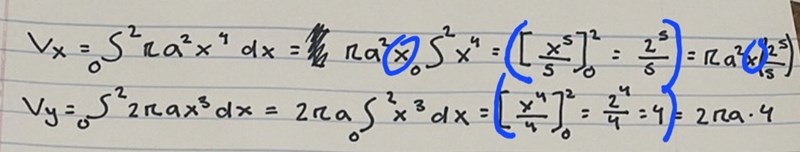 Vx = ₀∫² πa²x⁴ dx = πa²x ₀∫² x⁴ = ([x⁵/5]₀² = 2⁵/5) = πa²x(2⁵/5)
Vy = ₀∫² 2πax³dx = 2πa ₀∫² x³dx = ([x⁴/4]₀² = 2⁴/4 = 4) = 2πa·4